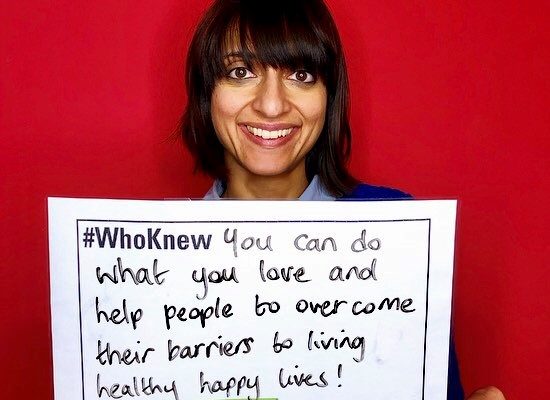 #WhoKnew You can do
what you love and
help people to overcome
their barriers to living
healthy happy lives!